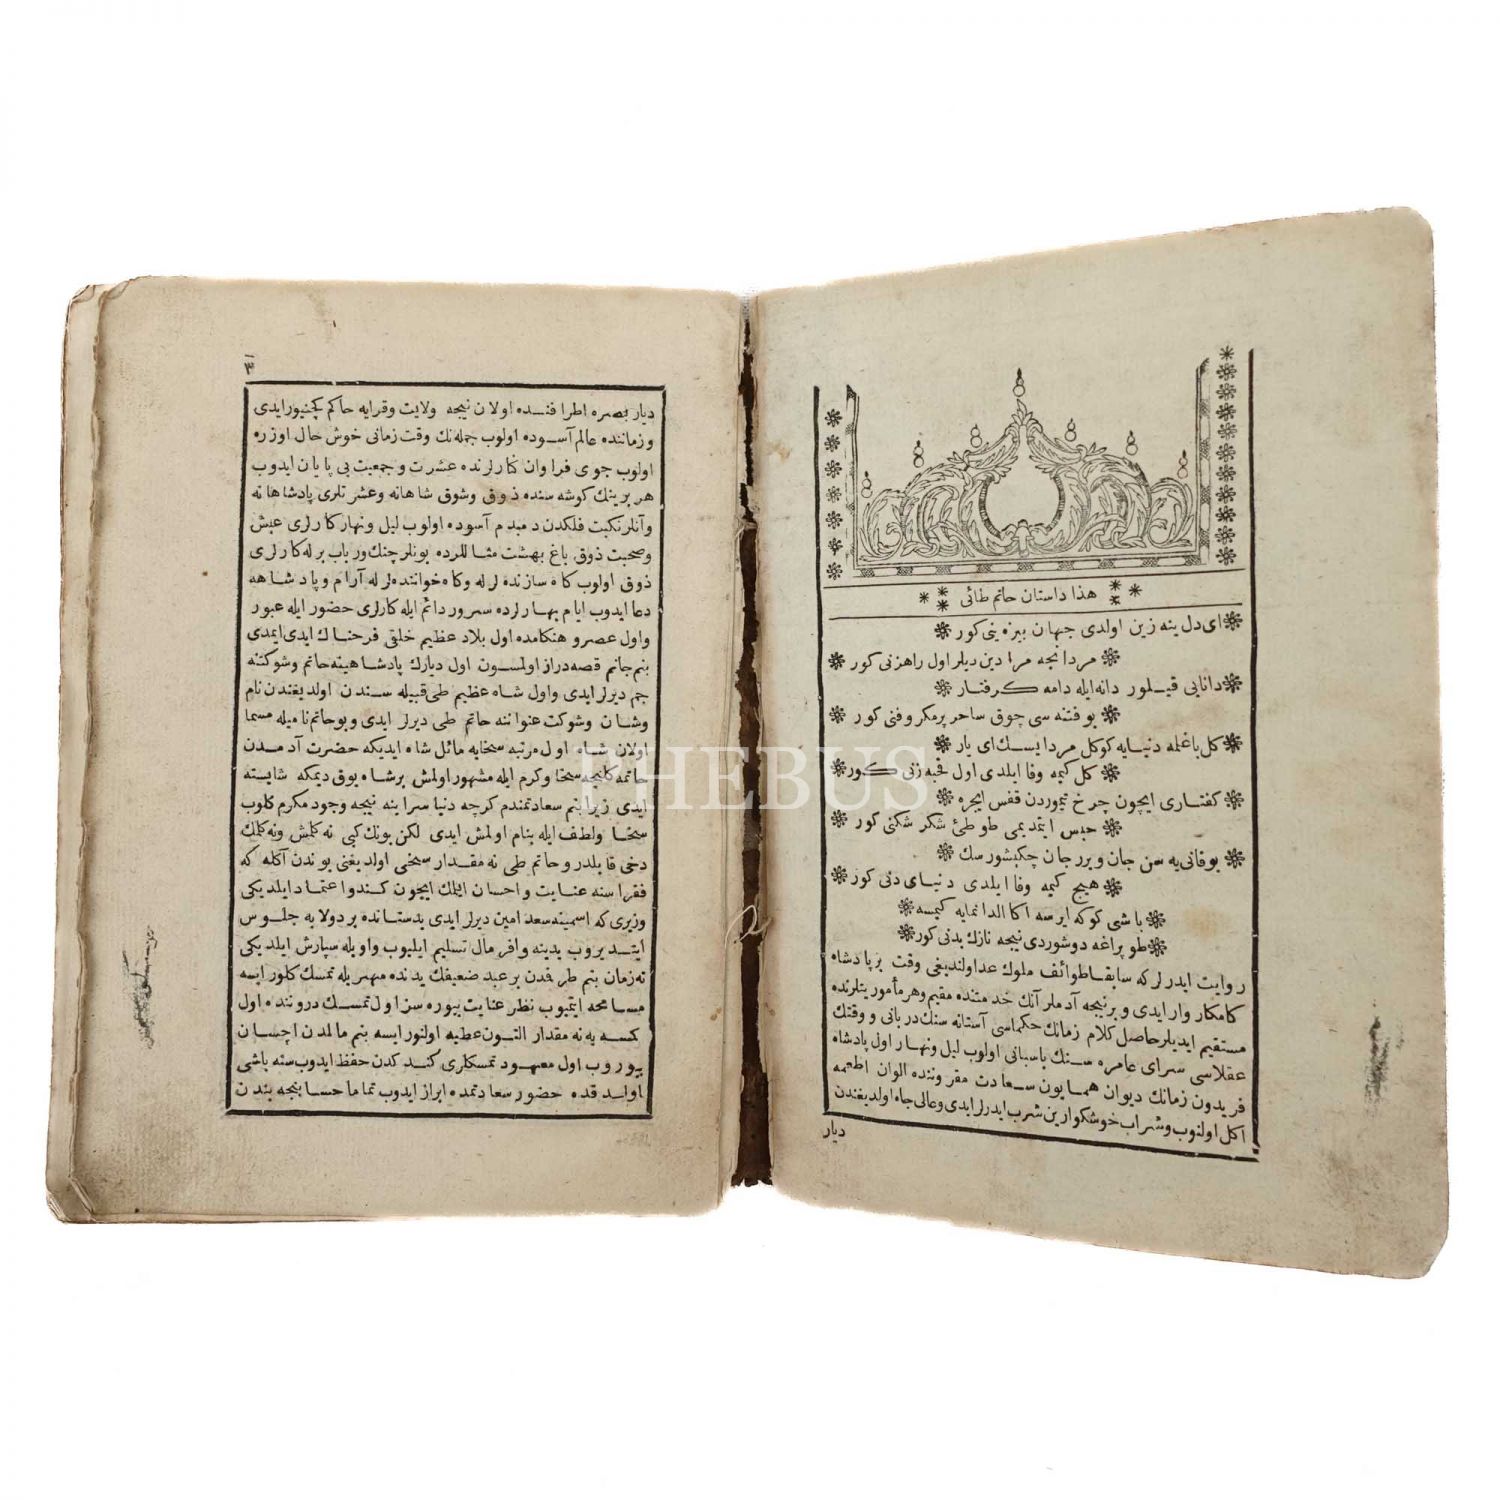 هذا داستان حاتم طائی
ای دل ینه زین اولدی جهان بیزه ینی کور
مردانجه مرادین دیلر اول راهزنی کور
دانایی قیـلور دانه ایله دامه کـرفتـار
بو فتنه سی چوق ساحر پرمکر و فنی کور
کل باغلمه دنیـایه کوکل مردایسـك ای یار
کل کیمه وفا ایلدی اول قحبه زنی کـور
کفتاری ایچون چرخ تیموردن قفس ایچره
حبس ایتدیمی طوطئ شکر شکنی کور
بوفانی یه سن جان ویرر جان چکیشورسك
هیچ کیمه وفا ایلدی دنیـای دنی کور
باشی کوکه ایرسه اکا الدانمایه کیمسه
طوپراغه دوشوردی نیجه نازك بدنی کور
روایت ایدرلرکه سابقـا طوائف ملوك عد اولندیغی وقت برپادشاه
کامکار وار ایدی و برنیجه آدملر آنك خدمتنده مقیم و هر مأموریتلرنده
مستقیم ایدیلر حاصل کلام زمانك حکماسی آستانه سنك دربانی و وقتك
عقلاسی سرای عامره سـنك پاسبانی اولوب لیل ونهـار اول پادشاه
فریدون زمانك دیوان همـایون سـعادت مقروننده الوان اطعمه
اکل اولنوب وشراب خوشکوارین شرب ایدرلر ایدی وعالی جاه اولدیغندن
دیار
٣
دیار بصره اطرافنـده اولان نیجه ولایت وقرایه حاکم ایدی
وزماننده عالم آسـوده اولوب جمله نك وقت زمانی خوش حال اوزره
اولوب جوی فراوان کنارلرنده عشرت وجمعیت بی پایان ایدوب
هر برینك کوشه سنده ذوق وشوق شاهانه وعشرتلری پادشاهانه
وآنلر نکبت فلکدن دمبدم آسوده اولوب لیل ونهار کارلری عیش
وصحبت ذوق باغ بهشت مثـاللرده بونلر چنك ورباب برله کارلری
ذوق اولوب کاه سازنده لرله وکاه خواننده لرله آرام وپادشاهه
دعا ایدوب ایام بهـارلرده سرور دائم ایله کارلری حضور ایله عبور
واول عصر و هنکامده اول بلاد عظیم خلقی فرحنـاك ایدی ایمدی
بنم جانم قصه دراز اولمسون اول دیارك پادشاهینه حاتم وشوکتنه
جم دیرلر ایدی واول شاه عظیم طی قبیله سـندن اولدیغندن نام
وشـان وشوکت عنواننه حاتم طی دیرلر ایدی وبو حاتم نامیله مسما
اولان شاه اول مرتبه سخایه مائل شاه ایدیکه حضرت آدمدن
حاتمه کلنجه سخا وکرم ایله مشهور اولمش برشاه یوق دیمکه شایسته
ایدی زیرا بنم سعادتمندم کرچه دنیا سراینه نیجه وجود مکرم کلوب
سخـا ولطف ایله بنام اولمش ایدی لکن بونك کبی نه کلمش ونه کلمك
دخی قابلدر وحاتم طی نه مقـدار سخی اولدیغنی بوندن آکله که
فقراسنه عنایت واحسان ایتمك ایچون کندو اعتمـاد ایلدیکی
وزیری که اسمینه سعد امین دیرلر ایدی بدستانده بردولابه جلـوس
ایتـدیروب یدینه وافر مال تسلیم ایلیوب واویله سپارش ایلدیکی
نه زمان بنم طرفدن بر عبد ضعیفك یدنده مهریله تمسك کلور ایسه
مسـامحه ایتمیوب نظر عنایت بیوره سز اول تمسـك دروننده اول
کمسه یه نه مقدار التـون عطیه اولنور ایسه بنم مالمدن احسـان
بیوروب اول معهـود تمسکلری کنـدکدن حفظ ایدوب سنه باشی
اولـدقده حضور سعادتمده ابراز ایدوب تماما حسـابنجه بندن
PHEBUS